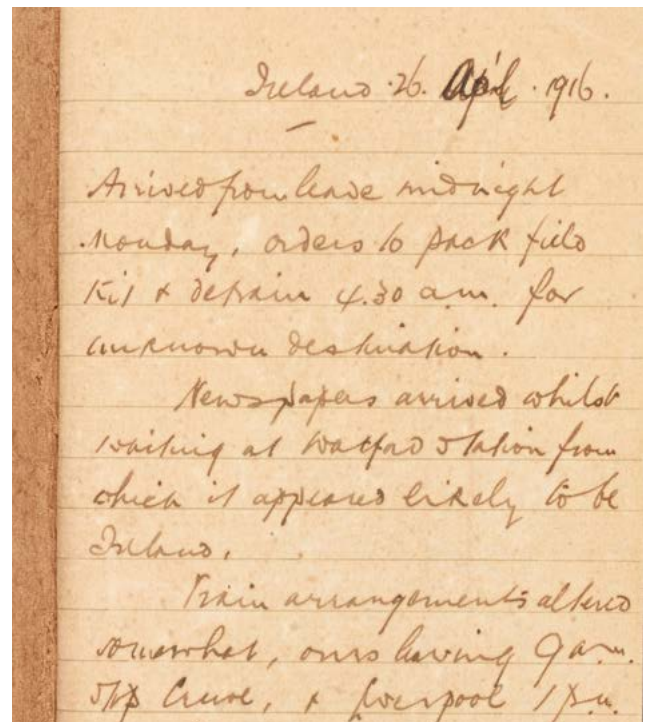 Ireland. 26. April. 1916.
Arrived from leave midnight
Monday, orders to pack field
kit & detrain 4.30 a.m. for
unknown destination.
Newspapers arrived whilst
waiting at Watford Station from
which it appeared likely to be
Ireland.
Train arrangements altered
somewhat, ours leaving 9 a.m.
stop Crewe, & Liverpool 1 p.m.